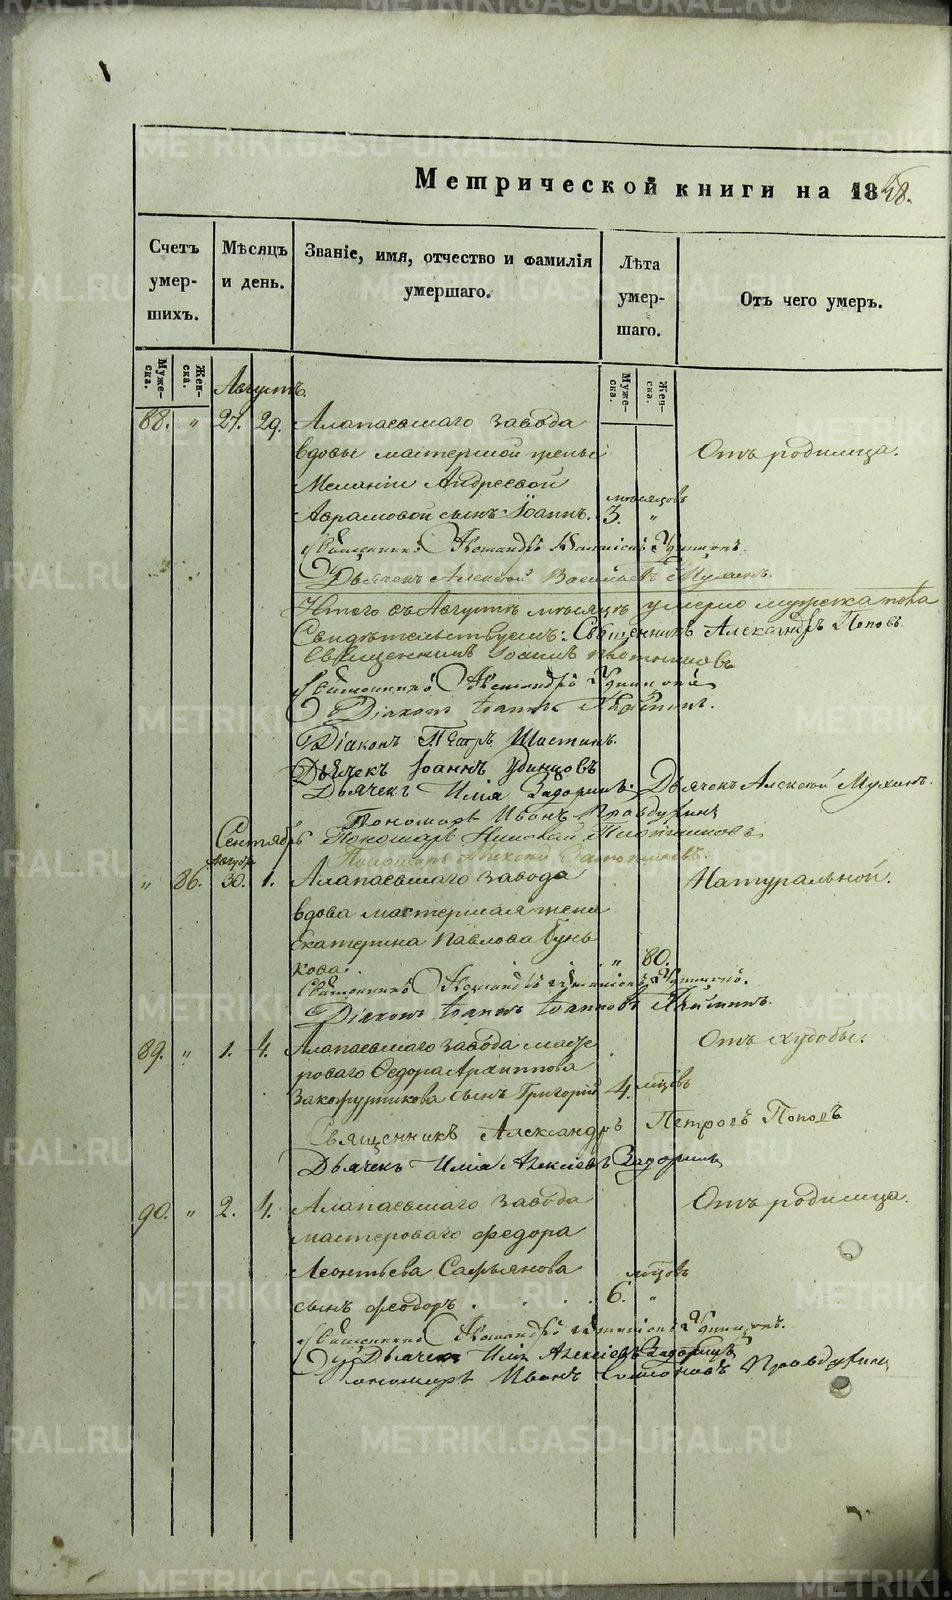 Метрической книги на 1848.
Счетъ умер-шихъ.
Мѣсяцъ и день.
Званіе, имя, отчество и фамилія умершаго.
Лѣта умер-шаго.
Отъ чего умеръ.
Муже-ска.
Жен-ска.
Муже-ска.
Жен-ска.
Августъ.
88. " 27. 29. Алапаевшаго завода
вдовы мастерской жены Отъ родимца.
Меланіи Андреевой
мѣсяцовъ
Аврамовой сынъ Іоаннъ. 3. "
Священникъ Александръ Удинцовъ.
Дьячекъ Алексей Васильевъ Мухинъ.
Итого въ Августѣ мѣсяцѣ умерло мужеска пола
Свидѣтельствуемъ: Священникъ Александръ Поповъ.
Священникъ Іоаннъ
Священникъ Александръ Удинцовъ
Діаконъ Іоаннъ
Діаконъ Петръ Шастинъ.
Дьячекъ Іоаннъ Удинцовъ
Дьячекъ Илія Задоринъ. Дьячекъ Алексей Мухинъ.
Пономарь Иванъ Правдухинъ
Сентябрь Пономарь Николай Плотниковъ
Августа Пономарь
" 86. 30. 1. Алапаевшаго завода Натуральной.
вдова мастерская жена
Екатерина Павлова Бунь
кова. " 80.
Священникъ Александръ Удинцовъ.
Діаконъ Іоаннъ Іоанновъ
89. " 1. 4. Алапаевшаго завода масте Отъ худобы.
роваго Ѳедора Архиппова
Закожурникова сынъ Григорій 4. мцовъ
Священникъ Александръ Петровъ Поповъ
Дьячекъ Илія Алексіевъ Задоринъ
90. " 2. 4. Алапаевшаго завода Отъ родимца.
мастероваго Федора
Леонтьева Сафьянова мцовъ
сынъ Феодоръ. 6. "
Священникъ Александръ Удинцовъ.
Дьячекъ Илія Алексіевъ Задоринъ
Пономарь Иванъ Симоновъ Правдухинъ
METRIKI.GASO-URAL.RU